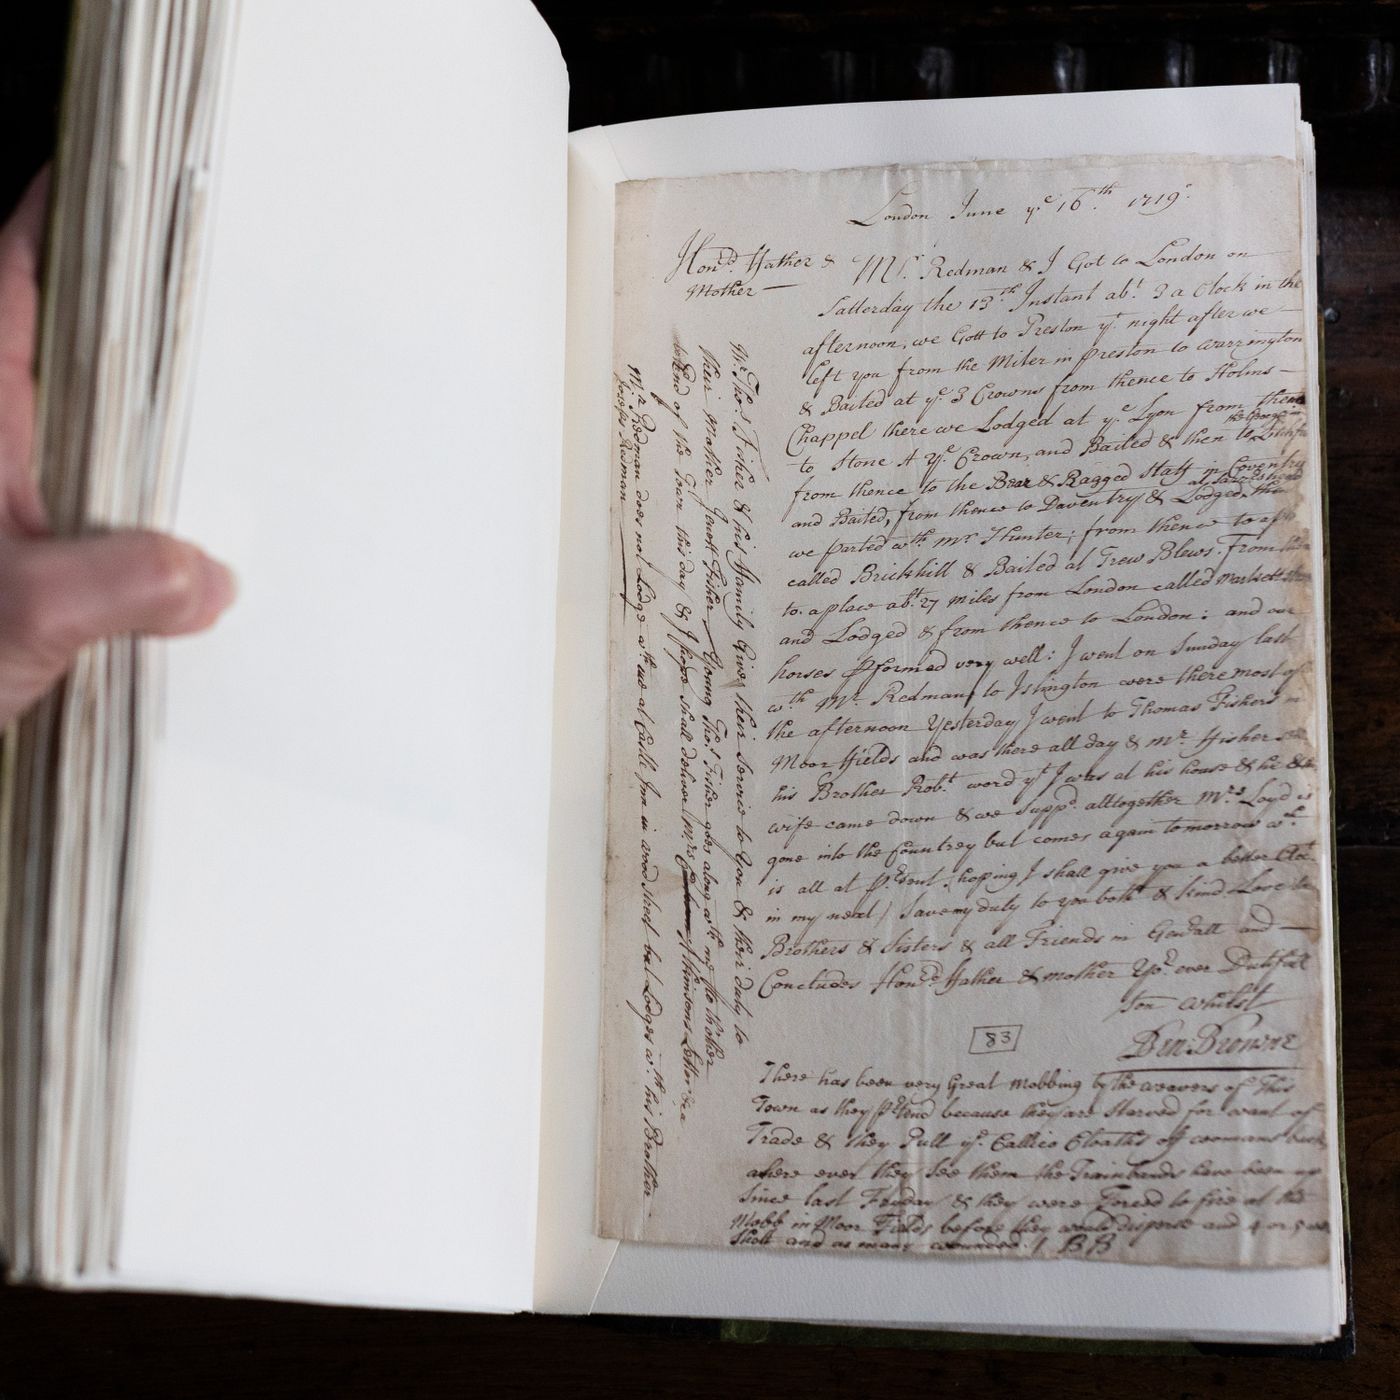 London June ye 16th 1719
Honrd. Father & Mr. Redman & I Got to London on
Mother
Satterday the 13th Instant abt. 3 a Clock in the
afternoon, we Gott to Preston yt. night after we
left you from the Miter in Preston to Warrington
& Baited at ye. 3 Crowns from thence to Holms
Chappel there we Lodged at ye Lyon from thence
to Stone At ye Crown, and Baited & then to the George in
from thence to the Bear & Ragged Staff in Coventry
and Baited, from thence to Daventry & Lodged, then
we parted wth. Mr Hunter; from thence to a
called Brickhill & Baited at Trew Blews. From
to a place abt. 27 miles from London called
and Lodged & from thence to London; and our
horses pformed very well: I went on Sunday last
wth Mr. Redman to Islington were there most of
the afternoon Yesterday I went to Thomas Fishers in
Moor ffields and was there all day & Mr. ffisher
his Brother Robt. word yt I was at his house & he &
wife came down & we suppd. alltogether Mrs Loyd is
gone into the Countrey but comes again tomorrow wch.
is all at pesent (hoping I shall give you a better
in my next) Save my duty to you both & kind Love to
Brothers & Sisters & all Friends in Gendall and
Concludes Honrd. Father & mother Yor. ever Dutifull
Son whilst
Ben: Browne
83
There has been very Great Mobbing by the weavers of This
Town as they ptend because they are starved for want of
Trade & they Pull ye. Callico Cloaths off womans back
where ever they See them the Trainbands have been up
since last Fryday & they were Forced to fire at the
Mobb in Moor Fields before they would disperse and 4 or 5
Shott and as many wounded. / BB
Mr. Thos. Fisher & his Family Gives their Service to You & their duty to
their Mother Jenett Fisher, Young Thos. Fisher goes along wth me to thother
End of the Town this day & I hope shall deliver Mrs Thomsons Letter
Mr. Redman does not Lodge wth me at Castle Inn in wood street but Lodges wth. his Brother